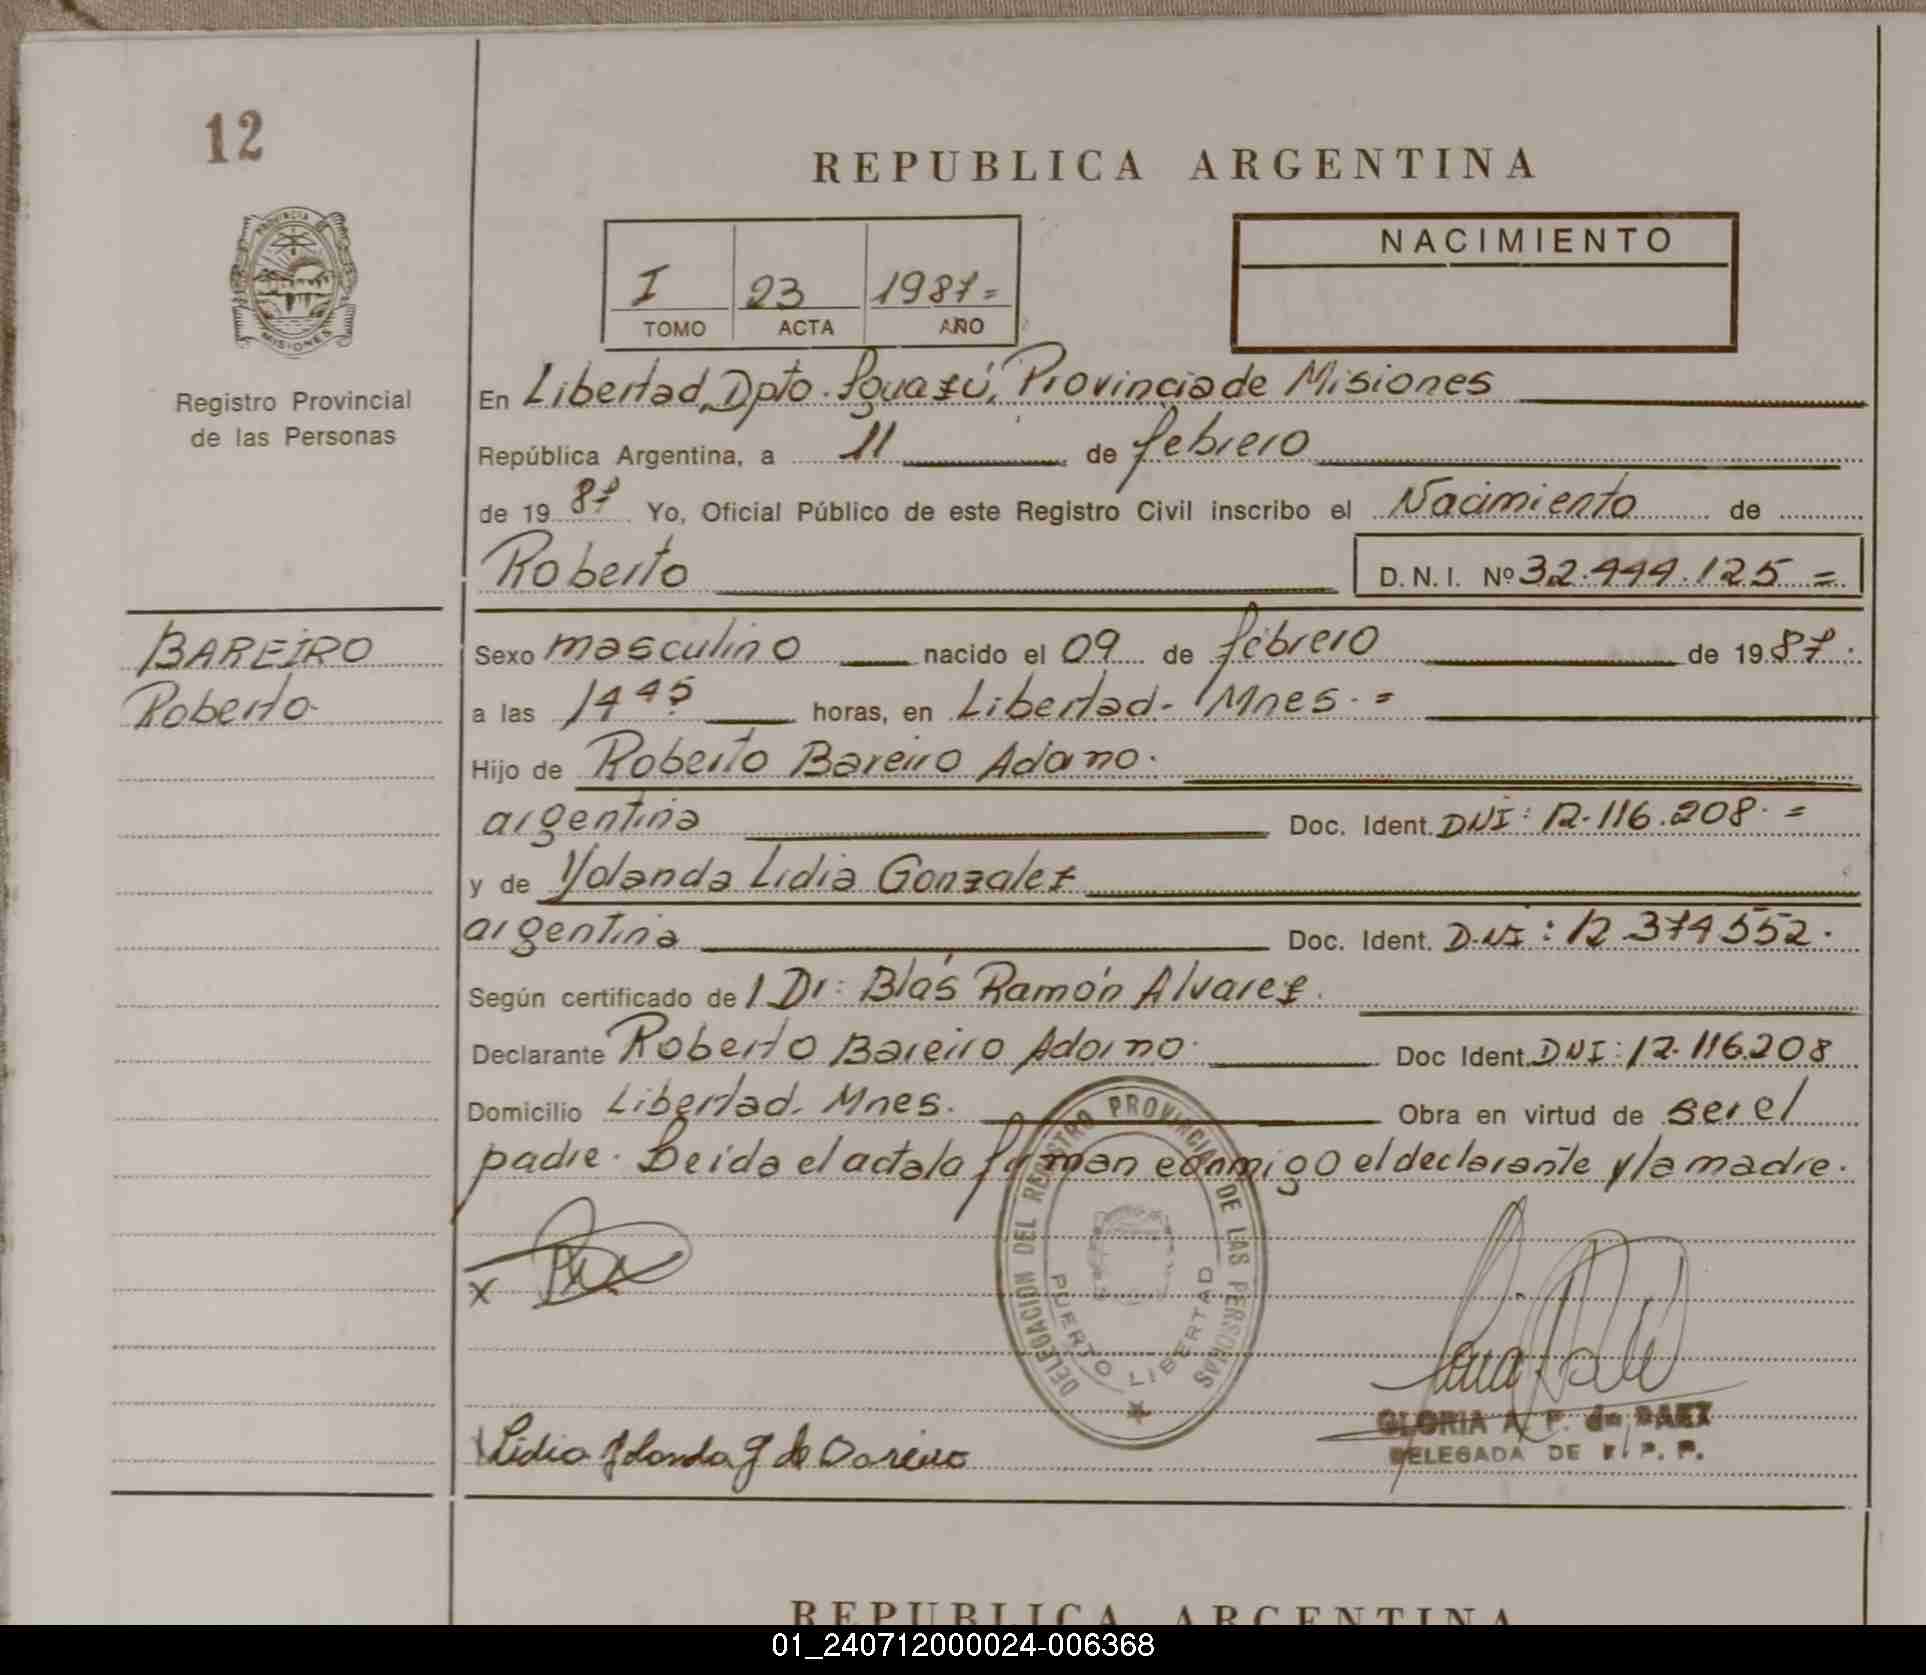 12
REPUBLICA ARGENTINA
PROVINCIA DE
MISIONES
Registro Provincial
de las Personas
NACIMIENTO
I 23 1987=
TOMO ACTA AÑO
En Libertad, Dpto. Iguazú, Provincia de Misiones
República Argentina, a 11 de febrero
de 19 87 Yo, Oficial Público de este Registro Civil inscribo el Nacimiento de
Roberto D.N.I. Nº 32.444.125 =
BAREIRO
Roberto
Sexo masculino nacido el 09 de febrero de 19 87.
a las 14 45 horas, en Libertad- Mnes. =
Hijo de Roberto Bareiro Adorno.
argentina Doc. Ident. DNI: 12.116.208. =
y de Yolanda Lidia Gonzalez
argentina Doc. Ident. D.NI: 12.374552.
Según certificado de l Dr: Blás Ramón Alvarez.
Declarante Roberto Bareiro Adorno. Doc Ident. DNI: 12.116.208
Domicilio Libertad. Mnes. Obra en virtud de ser el
padre. Leida el acta la firman conmigo el declarante y la madre.
x
DELEGACION DEL REGISTRO PROVINCIAL DE LAS PERSONAS
PUERTO LIBERTAD
GLORIA A. P. de PAEZ
DELEGADA DE R. P. P.
Lidia Yolanda G de Bareiro
REPUBLICA ARGENTINA
01_240712000024-006368